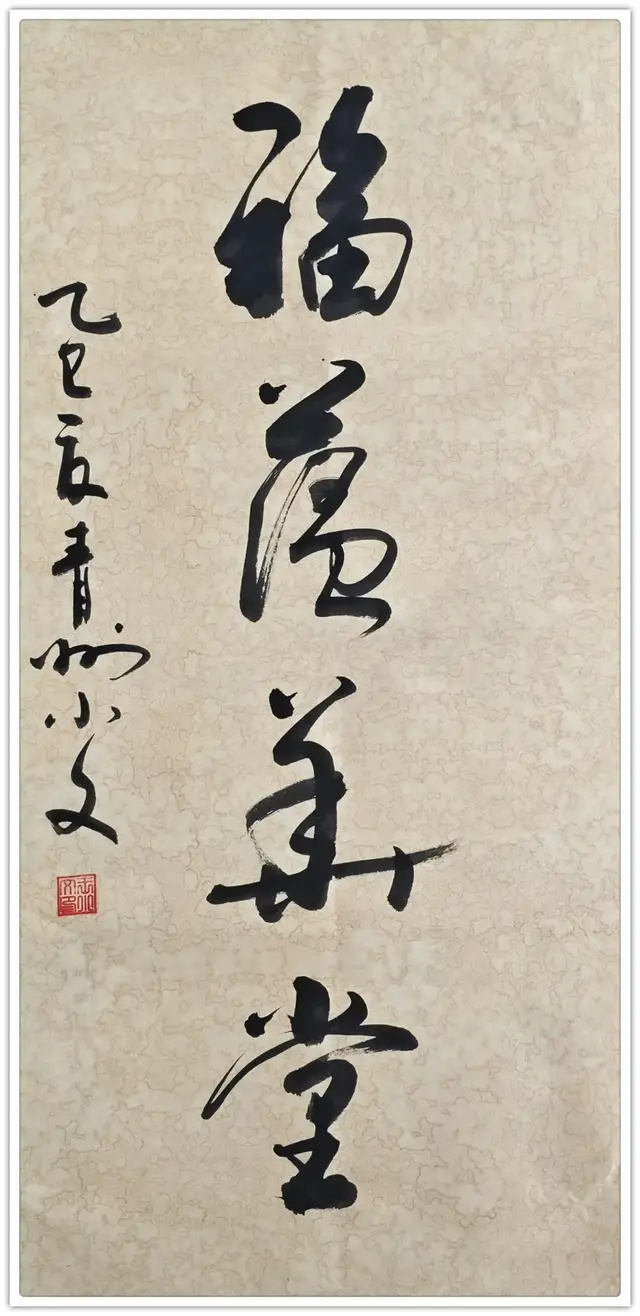 福蘊華堂
乙巳夏青州小文